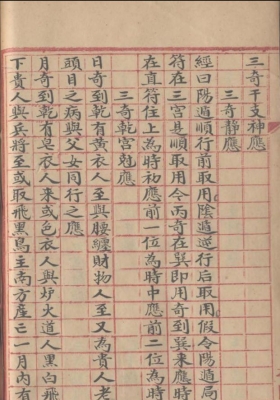 三奇干支神應
三奇靜應
經曰陽遁順行前取用陰遁逆行后取用假令陽遁局
符在三宫是順取用今丙奇在巽即用奇到巽來應時
在直符住上為時初應前一位為時中應前二位為時
三奇乾宫尅應
日奇到乾有黄衣人至與腰纏財物人至又為貴人老
頭目之病與父女同行之應
月奇到乾有皂衣人來或色衣人與炉火道人黑白飛
下貴人與兵將至或取飛黑鳥主南方產亡一月内有